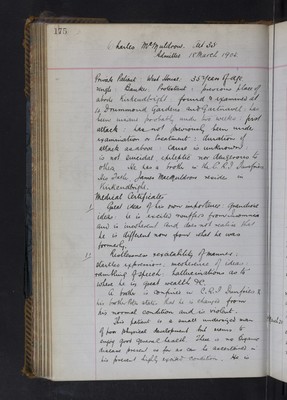 175
Charles McMuldrow. Æt 55
Admitted 18 March 1902
Private Patient: West House: 55 years of age
single: Banker Protestant: previous place of
abode Kirkcudbright found & examined at
14 Drummond Gardens
been insane probably under two weeks: first
attack: has not previously been under
examination or treatment: duration of
attack as above: cause is unknown:
is not suicidal epileptic nor dangerous to
others. He has a brother in the C.R.I. Dumfries
His brother James reside in
Kirkcudbright.
Medical Certificates
1. Great idea of his own importance. Grandiose
ideas: he is excited suffers from insomnia
and is incoherent and does not realise that
he is different now from what he was
formerly.
2. Restlessness excitability of manner:
startled expression: of ideas:
rambling of speech: hallucinations as to
when he is great wealth &c.
A brother is confined in C.R.I. Dumfries &
his brother also states that he is changed from
his normal condition and is violent.
This patient is a small undersized man
of poor physical development but seems to
enjoy good general health. There is no organic
disease present so far as can be ascertained in
his present highly excited condition. He is